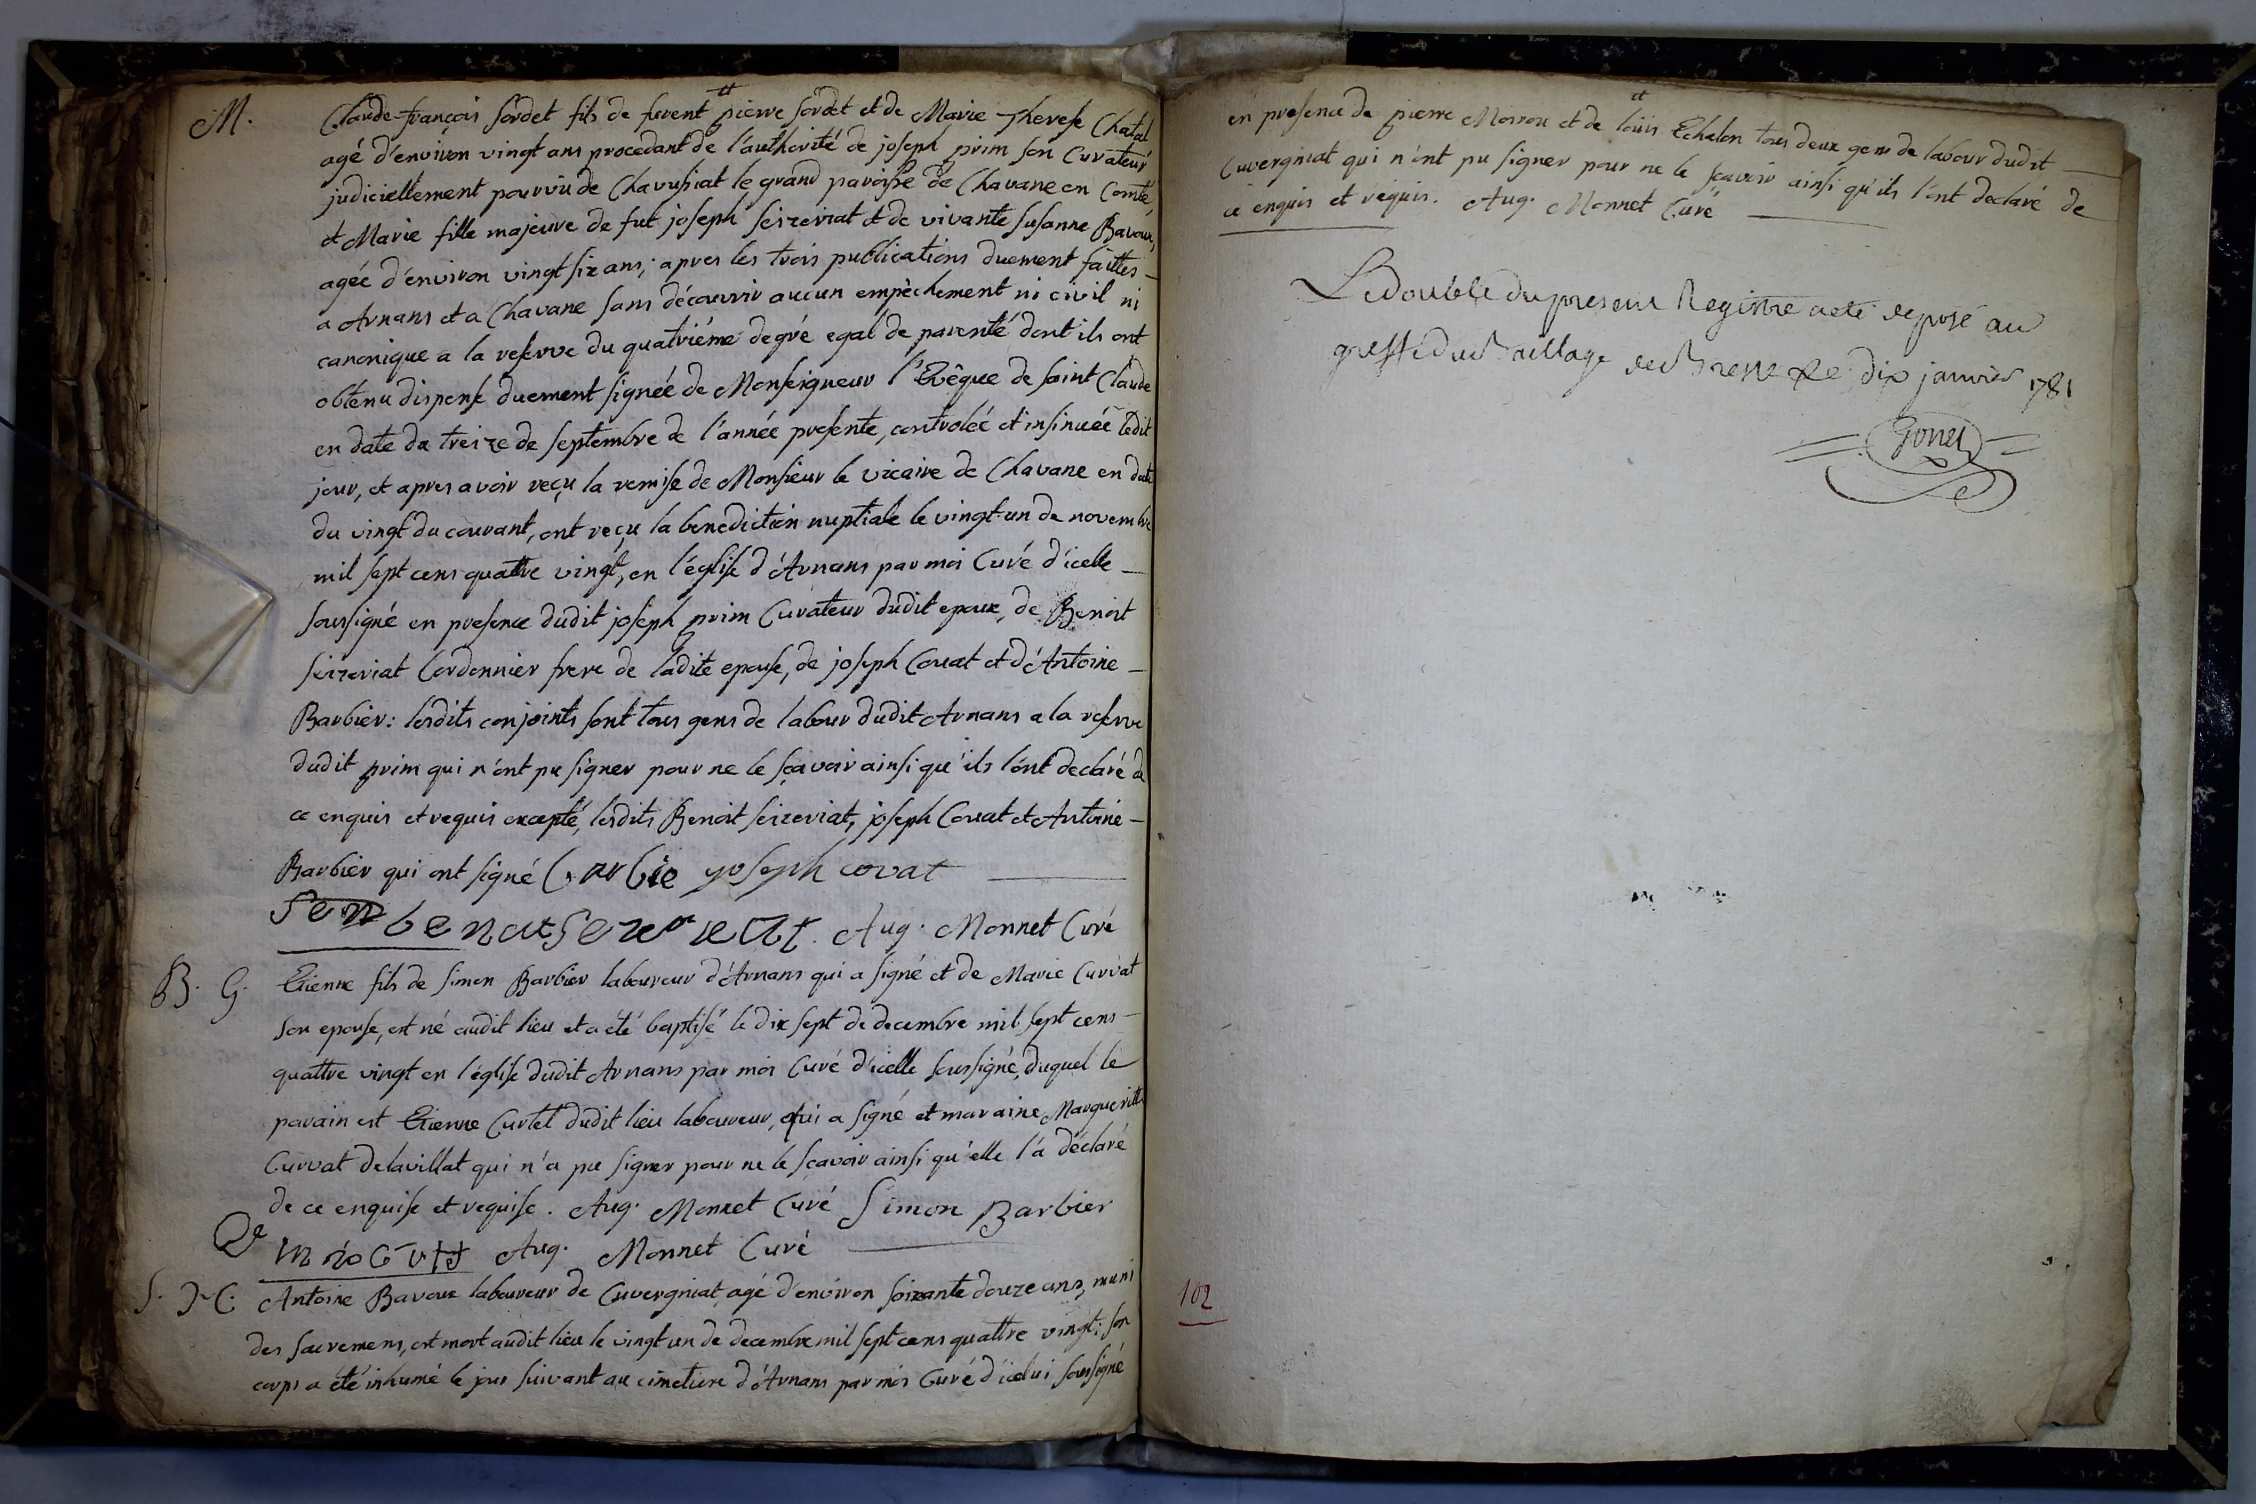 M. Claude-françois Sordet fils de furent pierre Sordet et de Marie Therese Chatal
agé d'environ vingt ans procedant de l'authorité de joseph prim son Curateur
judiciellement pourvu de Chavusiat le grand paroisse de Chavane en Comté,
et Marie fille majeure de fut joseph Seizeriat et de vivante Susanne Bavoux,
agée d'environ vingt six ans; apres les trois publications duement faittes –
a Arnans et a Chavane sans découvrir aucun empêchement ni civil ni
canonique a la reserve du quatriéme degré egal de parenté dont ils ont
obtenu dispense duement signée de Monseigneur l'Evêque de Saint Claude
en date du treize de septembre de l'année presente, controlée et insinuée ledit
jour, et apres avoir reçu la remise de Monsieur le vicaire de Chavane en date
du vingt du courant, ont reçu la benediction nuptiale le vingt-un de novembre
mil sept cens quattre vingt, en l'église d'Arnans par moi Curé d'icelle –
soussigné en presence dudit joseph prim Curateur dudit epoux, de Benoit
Seizeriat Cordonnier frere de ladite epouse, de joseph Couat et d'Antoine –
Barbier: lesdits conjoints sont tous gens de labour dudit Arnans a la reserve
dudit prim qui n'ont pu signer pour ne le sçavoir ainsi qu'ils l'ont declaré de
ce enquis et requis excepté, lesdits Benoit Seizeriat, joseph Couat et Antoine –
Barbier qui ont signé barbie joseph covat
benoit Aug. Monnet Curé
B. G. Etienne fils de Simon Barbier laboureur d'Arnans qui a signé et de Marie Curvat
son epouse, est né audit lieu et a été baptisé le dix sept de decembre mil sept cens –
quattre vingt en l'église dudit Arnans par moi Curé d'icelle soussigné, duquel le
parain est Etienne Curtet dudit lieu laboureur, qui a signé et maraine Margueritte
Curvat delavillat qui n'a pu signer pour ne le sçavoir ainsi qu'elle l'a déclaré
de ce enquise et requise. Aug. Monnet Curé Simon Barbier
Aug. Monnet Curé
S. Antoine Bavoux laboureur de Cuvergniat agé d'environ soixante douze ans, muni
des sacremens, est mort audit lieu le vingt un de decembre mil sept cens quattre vingt; son
corps a été inhumé le jour suivant au cimetiere d'Arnans par moi Curé d'icelui soussigné
en presence de pierre Moiroux et de loüis Echalon tous deux gens de labour dudit –
Cuvergniat qui n'ont pu signer pour ne le sçavoir ainsi qu'ils l'ont declaré de
ce enquis et requis. Aug. Monnet Curé
Le double du present Registre a eté deposé au
greffe du Bailliage de Bresse le dix janvier 1781
102